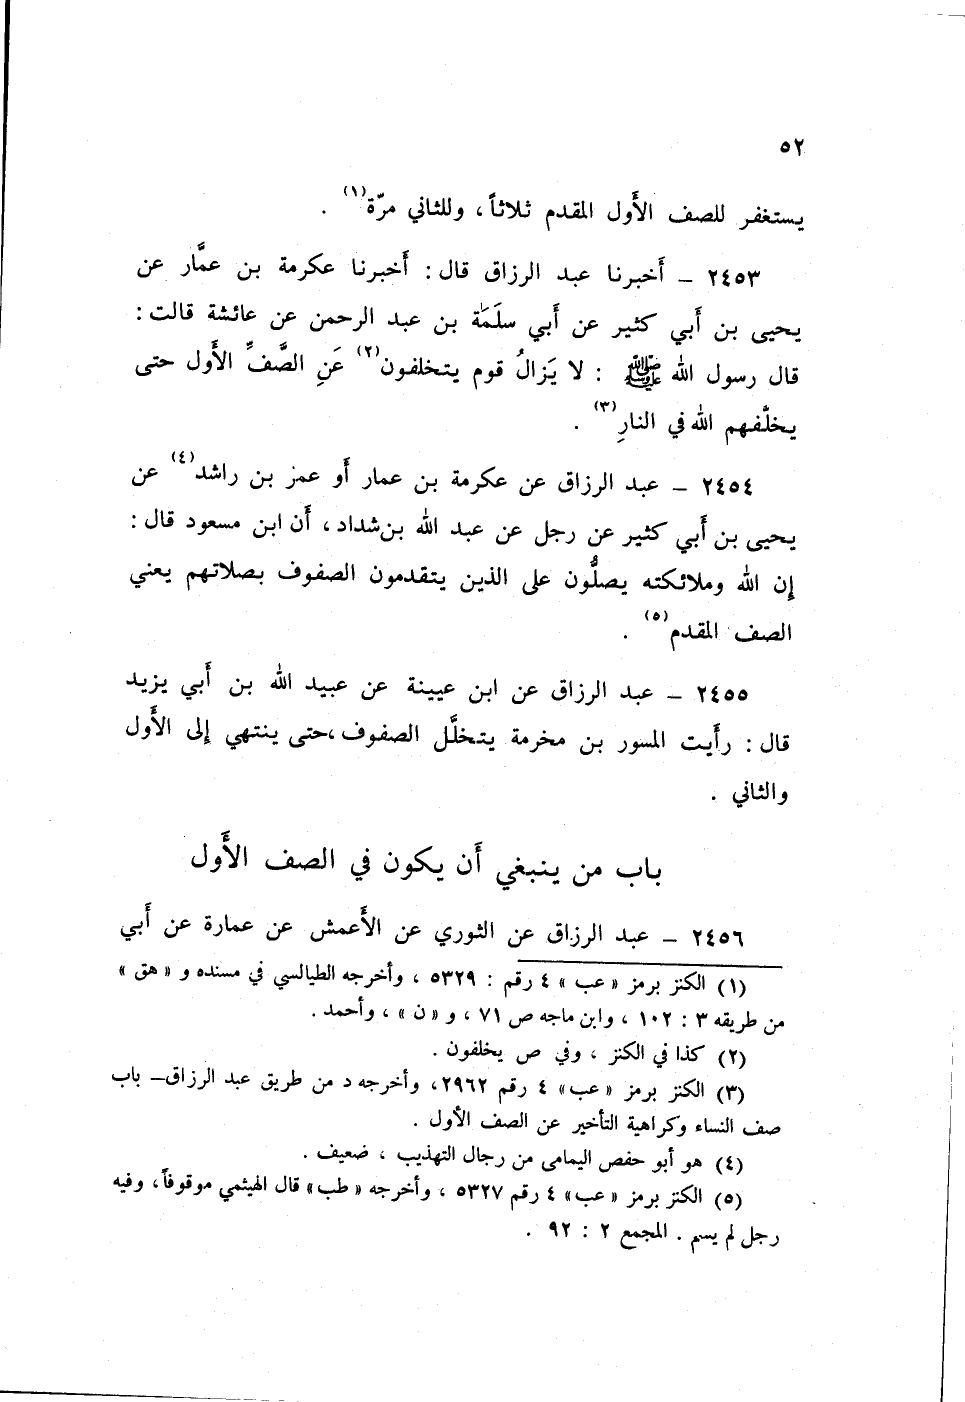 ٥٢
يستغفر للصف الأَول المقدم ثلاثاً، وللثاني مرّة(١) .
٢٤٥٣ ـ أَخبرنا عبد الرزاق قال : أَخبرنا عكرمة بن عمَّار عن
يحيى بن أَبي كثير عن أَبي سلَمَة بن عبد الرحمن عن عائشة قالت :
قال رسول الله ﷺ : لا يَزالُ قوم يتخلفون(٢) عَنِ الصَّفِّ الأَول حتى
يخلَّفهم الله في النارِ(٣) .
٢٤٥٤ ـ عبد الرزاق عن عكرمة بن عمار أَو عمر بن راشد(٤) عن
يحيى بن أَبي كثير عن رجل عن عبد الله بن شداد، أَن ابن مسعود قال :
إِن الله وملائكته يصلُّون على الذين يتقدمون الصفوف بصلاتهم يعني
الصف المقدم(٥) .
٢٤٥٥ ـ عبد الرزاق عن ابن عيينة عن عبيد الله بن أَبي يزيد
قال : رأَيت المسور بن مخرمة يتخلَّل الصفوف ،حتى ينتهي إِلى الأَول
والثاني .
باب من ينبغي أَن يكون في الصف الأَول
٢٤٥٦ ـ عبد الرزاق عن الثوري عن الأَعمش عن عمارة عن أَبي
(١) الكنز برمز «عب» ٤ رقم : ٥٣٢٩ ، وأخرجه الطيالسي في مسنده و «هق»
من طريقه ٣ : ١٠٢ ، وابن ماجه ص ٧١ ، و «ن» ، وأحمد .
(٢) كذا في الكنز ، وفي ص يخلفون .
(٣) الكنز برمز «عب» ٤ رقم ٢٩٦٢، وأخرجه د من طريق عبد الرزاق ـ باب
صف النساء وكراهية التأخير عن الصف الأول .
(٤) هو أبو حفص اليمامى من رجال التهذيب ، ضعيف .
(٥) الكنز برمز «عب» ٤ رقم ٥٣٢٧ ، وأخرجه «طب» قال الهيثمي موقوفاً ، وفيه
رجل لم يسم . المجمع ٢ : ٩٢ .